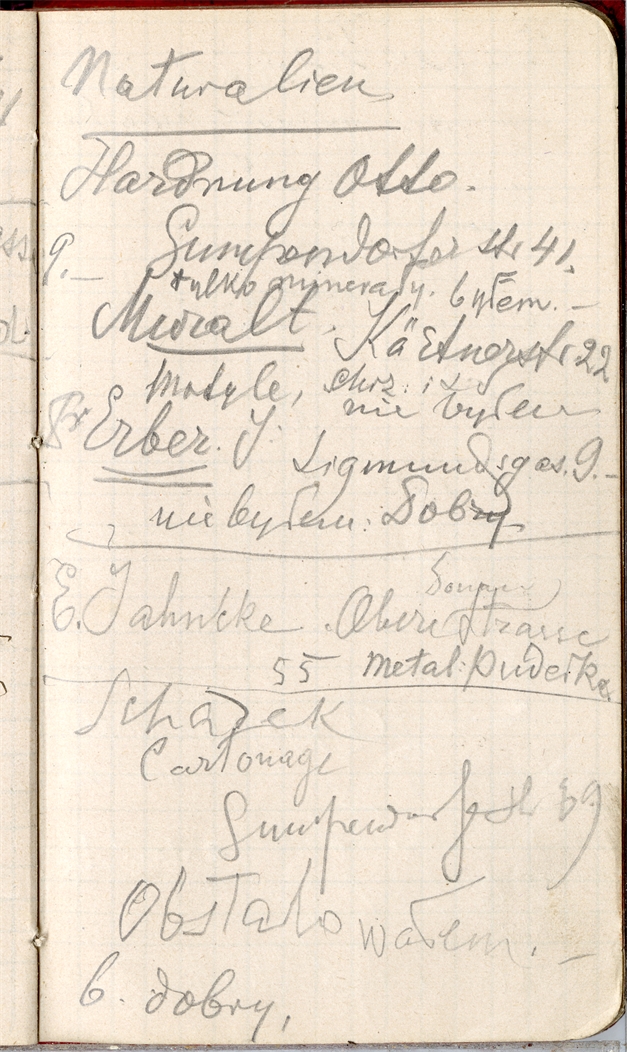 Naturalien
Hardnung Otto.
9. Gumpendorfer str 41.
tylko minerały. byłem. –
Muralt. Kärtnerstr 22
Motyle, chrz. i t.d.
nie byłem
Erber. J. Sigmundsgas. 9. –
nie byłem. Dobry
Donau
E. Jahncke. Obere Strasse
55 metal. pudełka
Schazek
Cartonage
Gumpendorfstr 59
Obstalowałem. –
b. dobry,